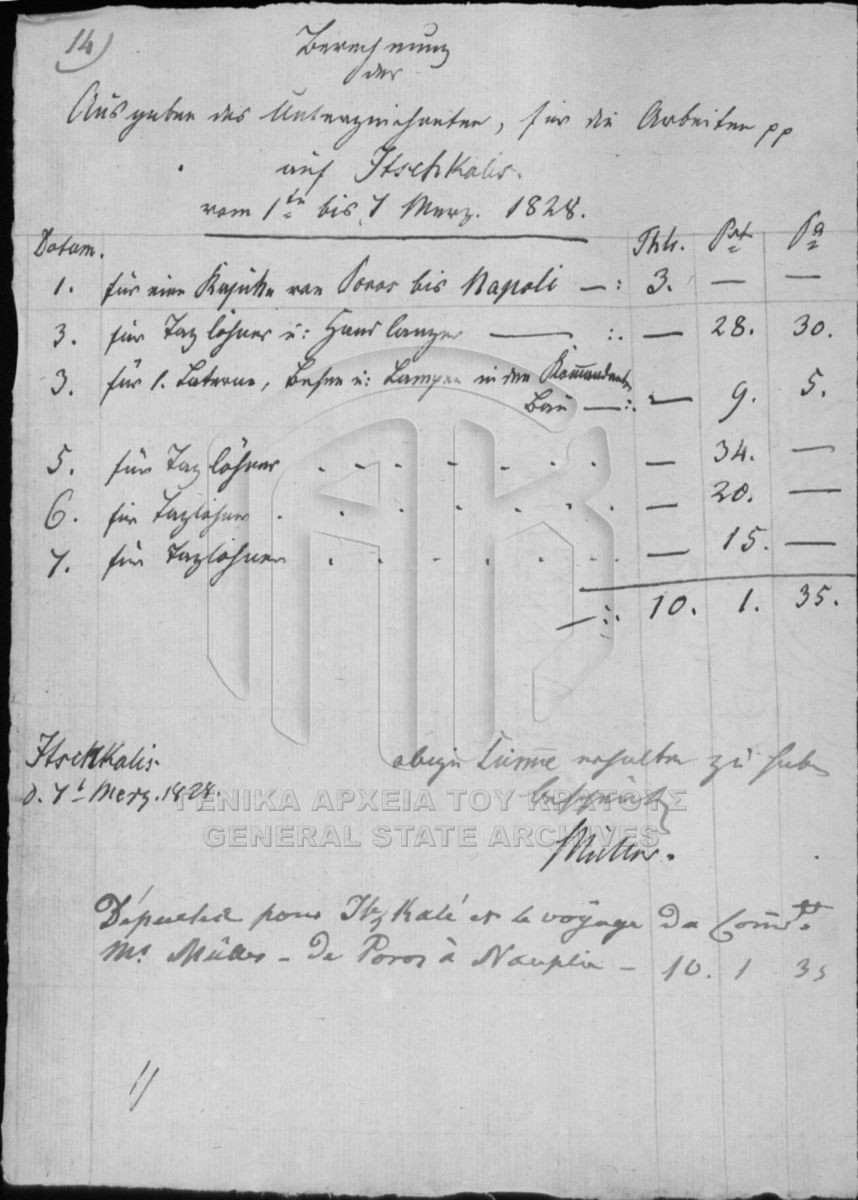 14)
Berechnung
der
Ausgaben des Unterzeichneten, für die Arbeiten pp
auf Itschkalis.
vom 1ten bis 7 Merz. 1828.
Datum. Thlr. Pst Pa
1. für eine Kajüke von Poros bis Napoli —: 3. — —
3. für Taglöhner u: Handlanger — :. — 28. 30.
3. für 1. Laterne, Besen u: Lampen in den Kommandanten
Bau —:. — 9. 5.
5. für Taglöhner . . . . . . . — 34. —
6. für Taglöhner . . . . . . . — 20. —
7. für Taglöhner . . . . . . . — 15. —
—:. 10. 1. 35.
Itschkalis.
d. 7t Merz. 1828.
obige Summe erhalten zu haben
bescheinigt
Müller.
ΓΕΝΙΚΑ ΑΡΧΕΙΑ ΤΟΥ ΚΡΑΤΟΥΣ
GENERAL STATE ARCHIVES
pour Itzkalé et le voyage du Comdt
Mr Müller – de Poros à Nauplie – 10. 1 35